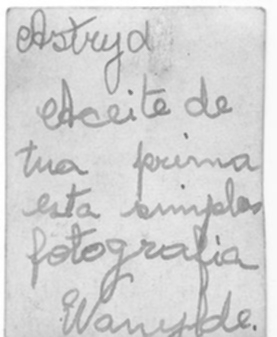 Astryd
Aceite de
tua prima
esta simples
fotografia
Wanylde.